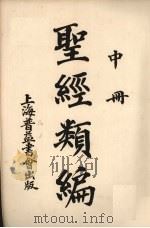 中冊
聖經類編
上海普益書會出版